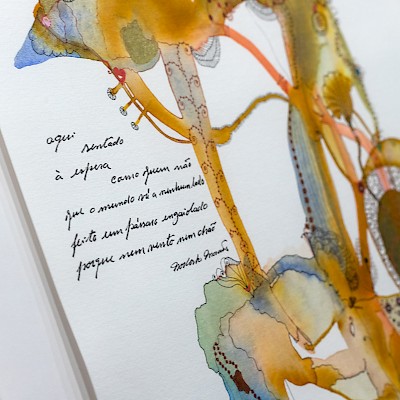 aqui
sentado
à espera
como quem não
que o mundo vá a nenhum lado
feito um pássaro engaiolado
porque nem vento nem chão